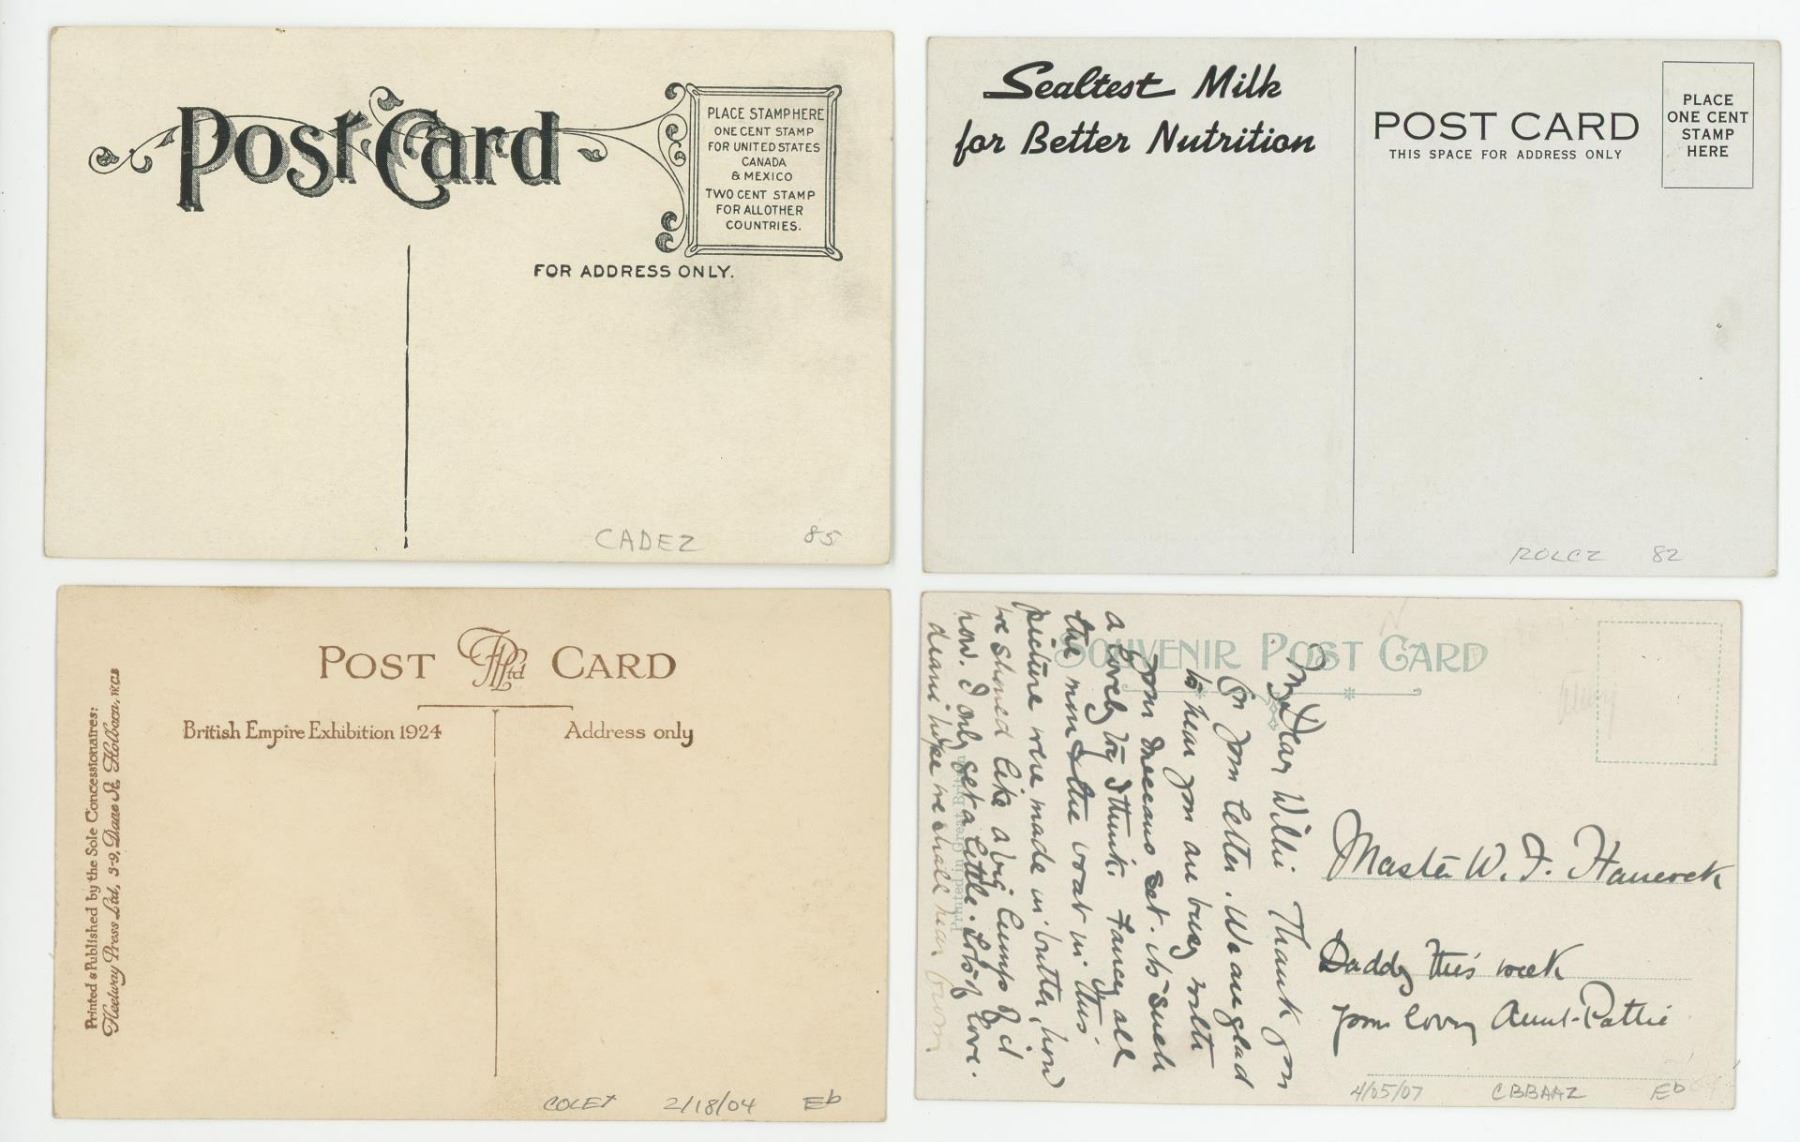 Post Card
PLACE STAMP HERE
ONE CENT STAMP
FOR UNITED STATES
CANADA
& MEXICO
TWO CENT STAMP
FOR ALL OTHER
COUNTRIES.
FOR ADDRESS ONLY.
CADEZ 85
Sealtest Milk
for Better Nutrition
POST CARD
THIS SPACE FOR ADDRESS ONLY
PLACE
ONE CENT
STAMP
HERE
ROLCZ 82
POST CARD
British Empire Exhibition 1924
Address only
Printed & Published by the Sole Concessionaires:
Fleetway Press Ltd, 3-9, Dane St, Holborn, WC1
COLEX 2/18/04 Eb
SOUVENIR POST CARD
Printed in Great Britain
My Dear Willie Thank you
for your letter. We are glad
to hear you are busy with
your Meccano set. its such
a lovely toy I think. Fancy all
the men & the boat in this
picture were made in butter, how
we should like a big lump of it
now. I only get a little. Lots of love.
hope we shall hear from
Master W. F. Hancock
Daddy this week
your loving Aunt-Pattie
4/05/07 CBBAAZ Eb